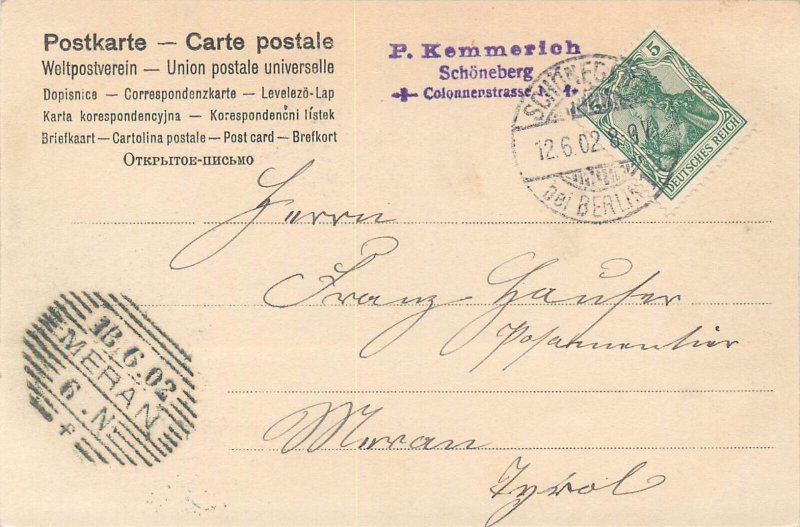 Postkarte — Carte postale
Weltpostverein — Union postale universelle
Dopisnice — Correspondenzkarte — Levelező-Lap
Karta korespondencyjna — Korespondenční lístek
Briefkaart — Cartolina postale — Post card — Brefkort
Открытое-письмо
P. Kemmerich
Schöneberg
Colonnenstrasse
5
DEUTSCHES REICH
12.6.02. 8-9V.
bei BERLIN
Herrn
Franz Hauser
Posamentier
Meran
Tyrol
13.6.02
MERAN
6.N.